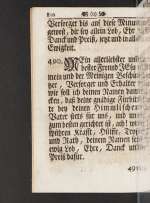 Versorger bis auf diese Minut
gewest, dir sey allein Lob, Ehr
Danck und Preiß, jetzt und in all
Ewigkeit.
490. Mein allerliebster und
bester Freund JEsu
mein und der Meinigen Beschü-
tzer, Versorger und Erhalter
wie soll ich deinen Namen dan-
cken, daß deine gnädige Fürbit-
te bey deinen Himmlischen
Vater stets für uns, und uns
zum besten gerichtet ist, und wir
spühren Krafft, Hülffe, Trost
und Rath, deinen Namen sey
ewig Lob, Ehre, Danck und
Preiß dafür.
491